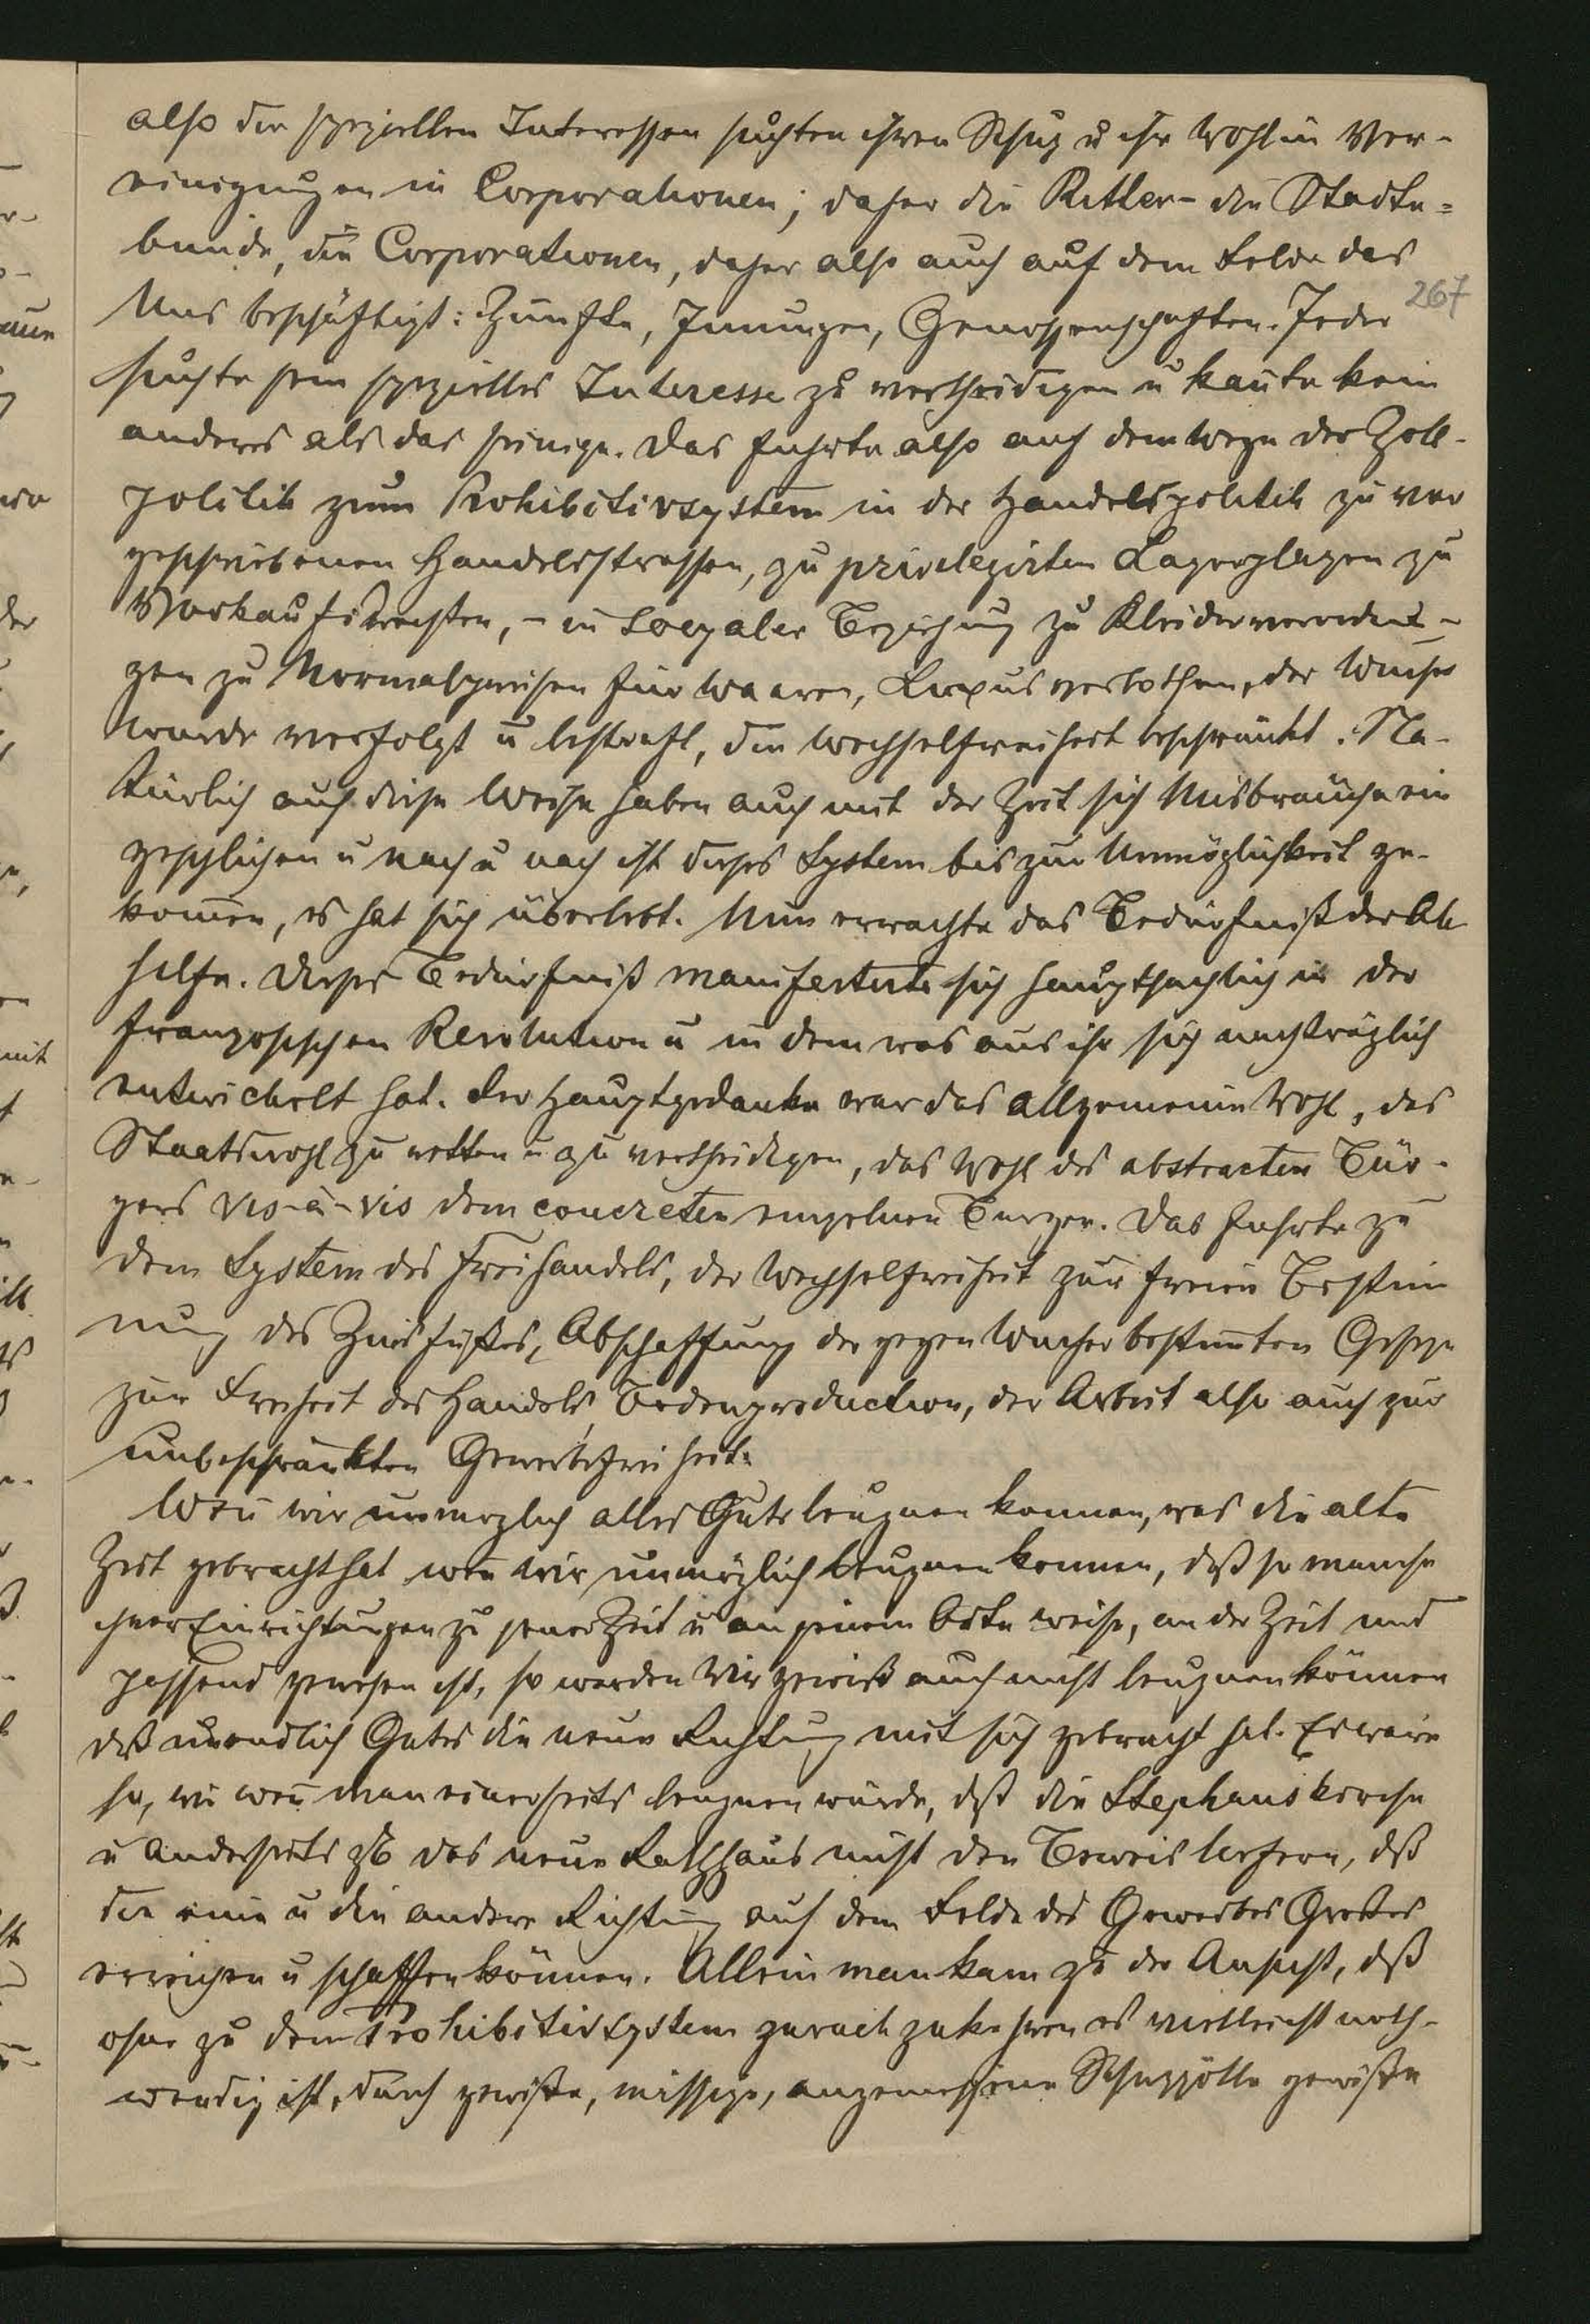 also die speziellen Interessen suchten ihren Schuz u ihr Wohl in Ver-
einigungen in Corporationen; daher die Ritter- die Stadte=
bunde, die Corporationen, daher also auch auf dem Felde das
Uns beschäftigt: Zunfte, Innungen, Genossenschaften. Jeder
267
suchte sein spezielles Interesse zu vertheidigen u kannte kein
anderes als das seinige. Das fuhrte also auf dem Wege der Zoll-
politik zum Prohibitivsystem in der Handelspolitik zu vor
geschriebenen Handelsstrassen, zu privilegirten Lagerplazen zu
Vorkaufsrechten, - in sozialer Beziehung zu Kleiderverordnun-
gen zu Normalpreisen für Waaren, Luxusverbothen, der Wucher
wurde verfolgt u bestraft, die Wechselfreiheit beschränkt. Na-
türlich auf diese Weise haben auch mit der Zeit sich Misbräuche ein
geschlichen u nach u nach ist dieses System bis zur Unmöglichkeit ge-
kom̄en, es hat sich überlebt. Nun erwachte das Bedürfniß der Ab
hilfe. Dieses Bedürfniß manifestirte sich hauptsachlich in der
franzosischen Revolution u in dem was aus ihr sich nachträglich
entwickelt hat. Der Hauptgedanke war das allgemeine Wohl, das
Staatswohl zu retten u zu vertheidigen, das Wohl des abstracten Bür-
gers vis-à-vis dem concreten einzelnen Burger. Das fuhrte zu
dem System des Freihandels, der Wechselfreiheit zur freien Bestim̄
nung des Zinsfußes, Abschaffung der gegen Wucher bestim̄ten Geseze
zur Freiheit des Handels, Bodenproduction, der Arbeit also auch zur
unbeschränkten Gewerbefreiheit.
Wen̄ wir unmoglich alles Gute leugnen konnen, was die alte
Zeit gebracht hat wen̄ wir unmöglich leugnen konnen, daß so manche
ihrer Einrichtungen zu jener Zeit u an jenem Orte weise, an der Zeit und
passend gewesen ist, so werden Wir gewiß auch nicht leugnen können
daß unendlich Gutes die neue Richtung mit sich gebracht hat. Es wäre
so, wie wen̄ man einerseits leugnen würde, daß die Stephanskirche
u anderseits zB das neue Rathhaus nicht den Beweis liefern, daß
die eine u die andere Richtung auf dem Felde des Gewerbes Großes
erreichen u schaffen können. Allein man kam zu der Ansicht, daß
ohne zu dem Prohibitivsystem zuruck zukehren es vielleicht noth-
wendig ist, durch gewiße, missige, angemessene Schuzzölle gewiße